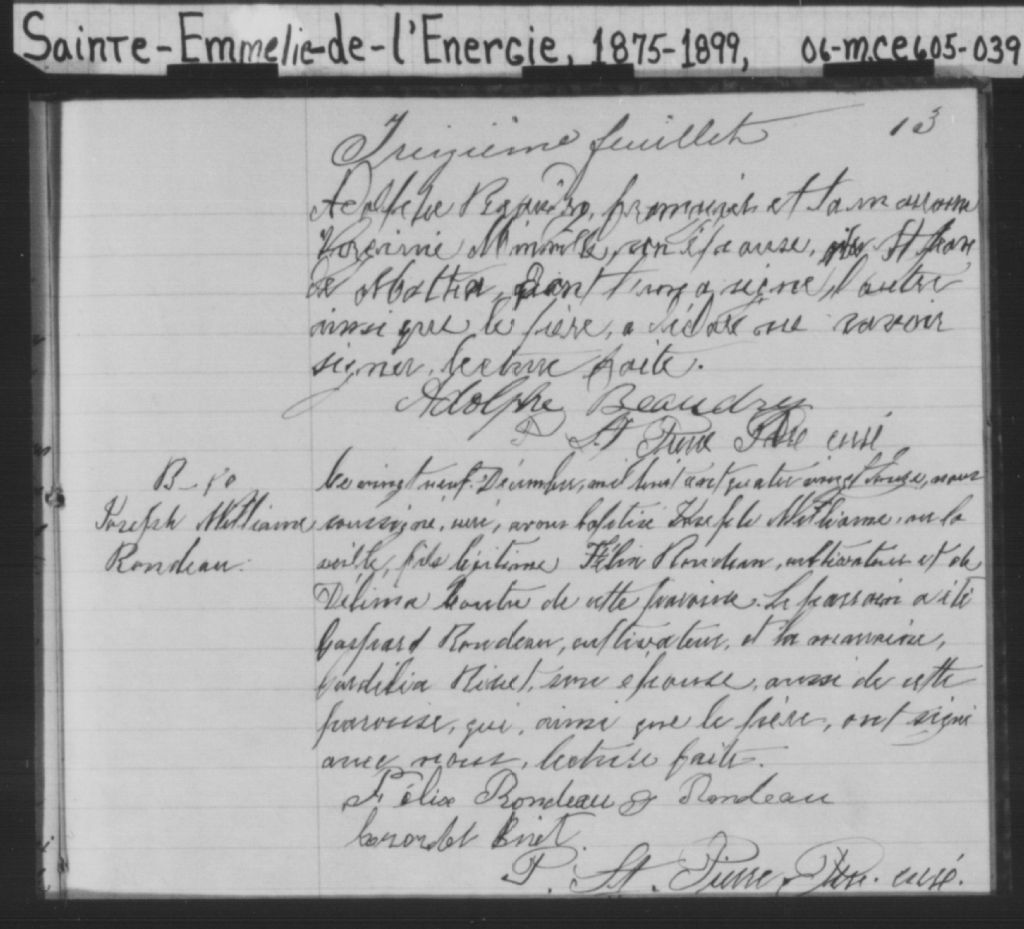 Sainte-Emmelie-de-l'Energie, 1875-1899, 06-M.CE605-039
Treizième feuillet 13
Adolphe et la marraine
son épouse, de St Jean
de Matha, dont l'un a signé, l'autre
ainsi que le père, a déclaré ne savoir
signer. Lecture faite.
Adolphe Beaudry
P. St Pierre Ptre curé
B-
Joseph Williame
Rondeau.
Le vingt neuf Décembre, mil huit cent quatre vingt nous
soussigné, curé, avons baptisé Joseph Williame, né la
veille, fils légitime Félix Rondeau, cultivateur et de
Délima de cette paroisse. Le parrain a été
Gaspard Rondeau, cultivateur, et la marraine,
son épouse, aussi de cette
paroisse, qui, ainsi que le père, ont signé
avec nous, lecture faite.
Félix Rondeau G Rondeau
P. St. Pierre, Ptre. curé.